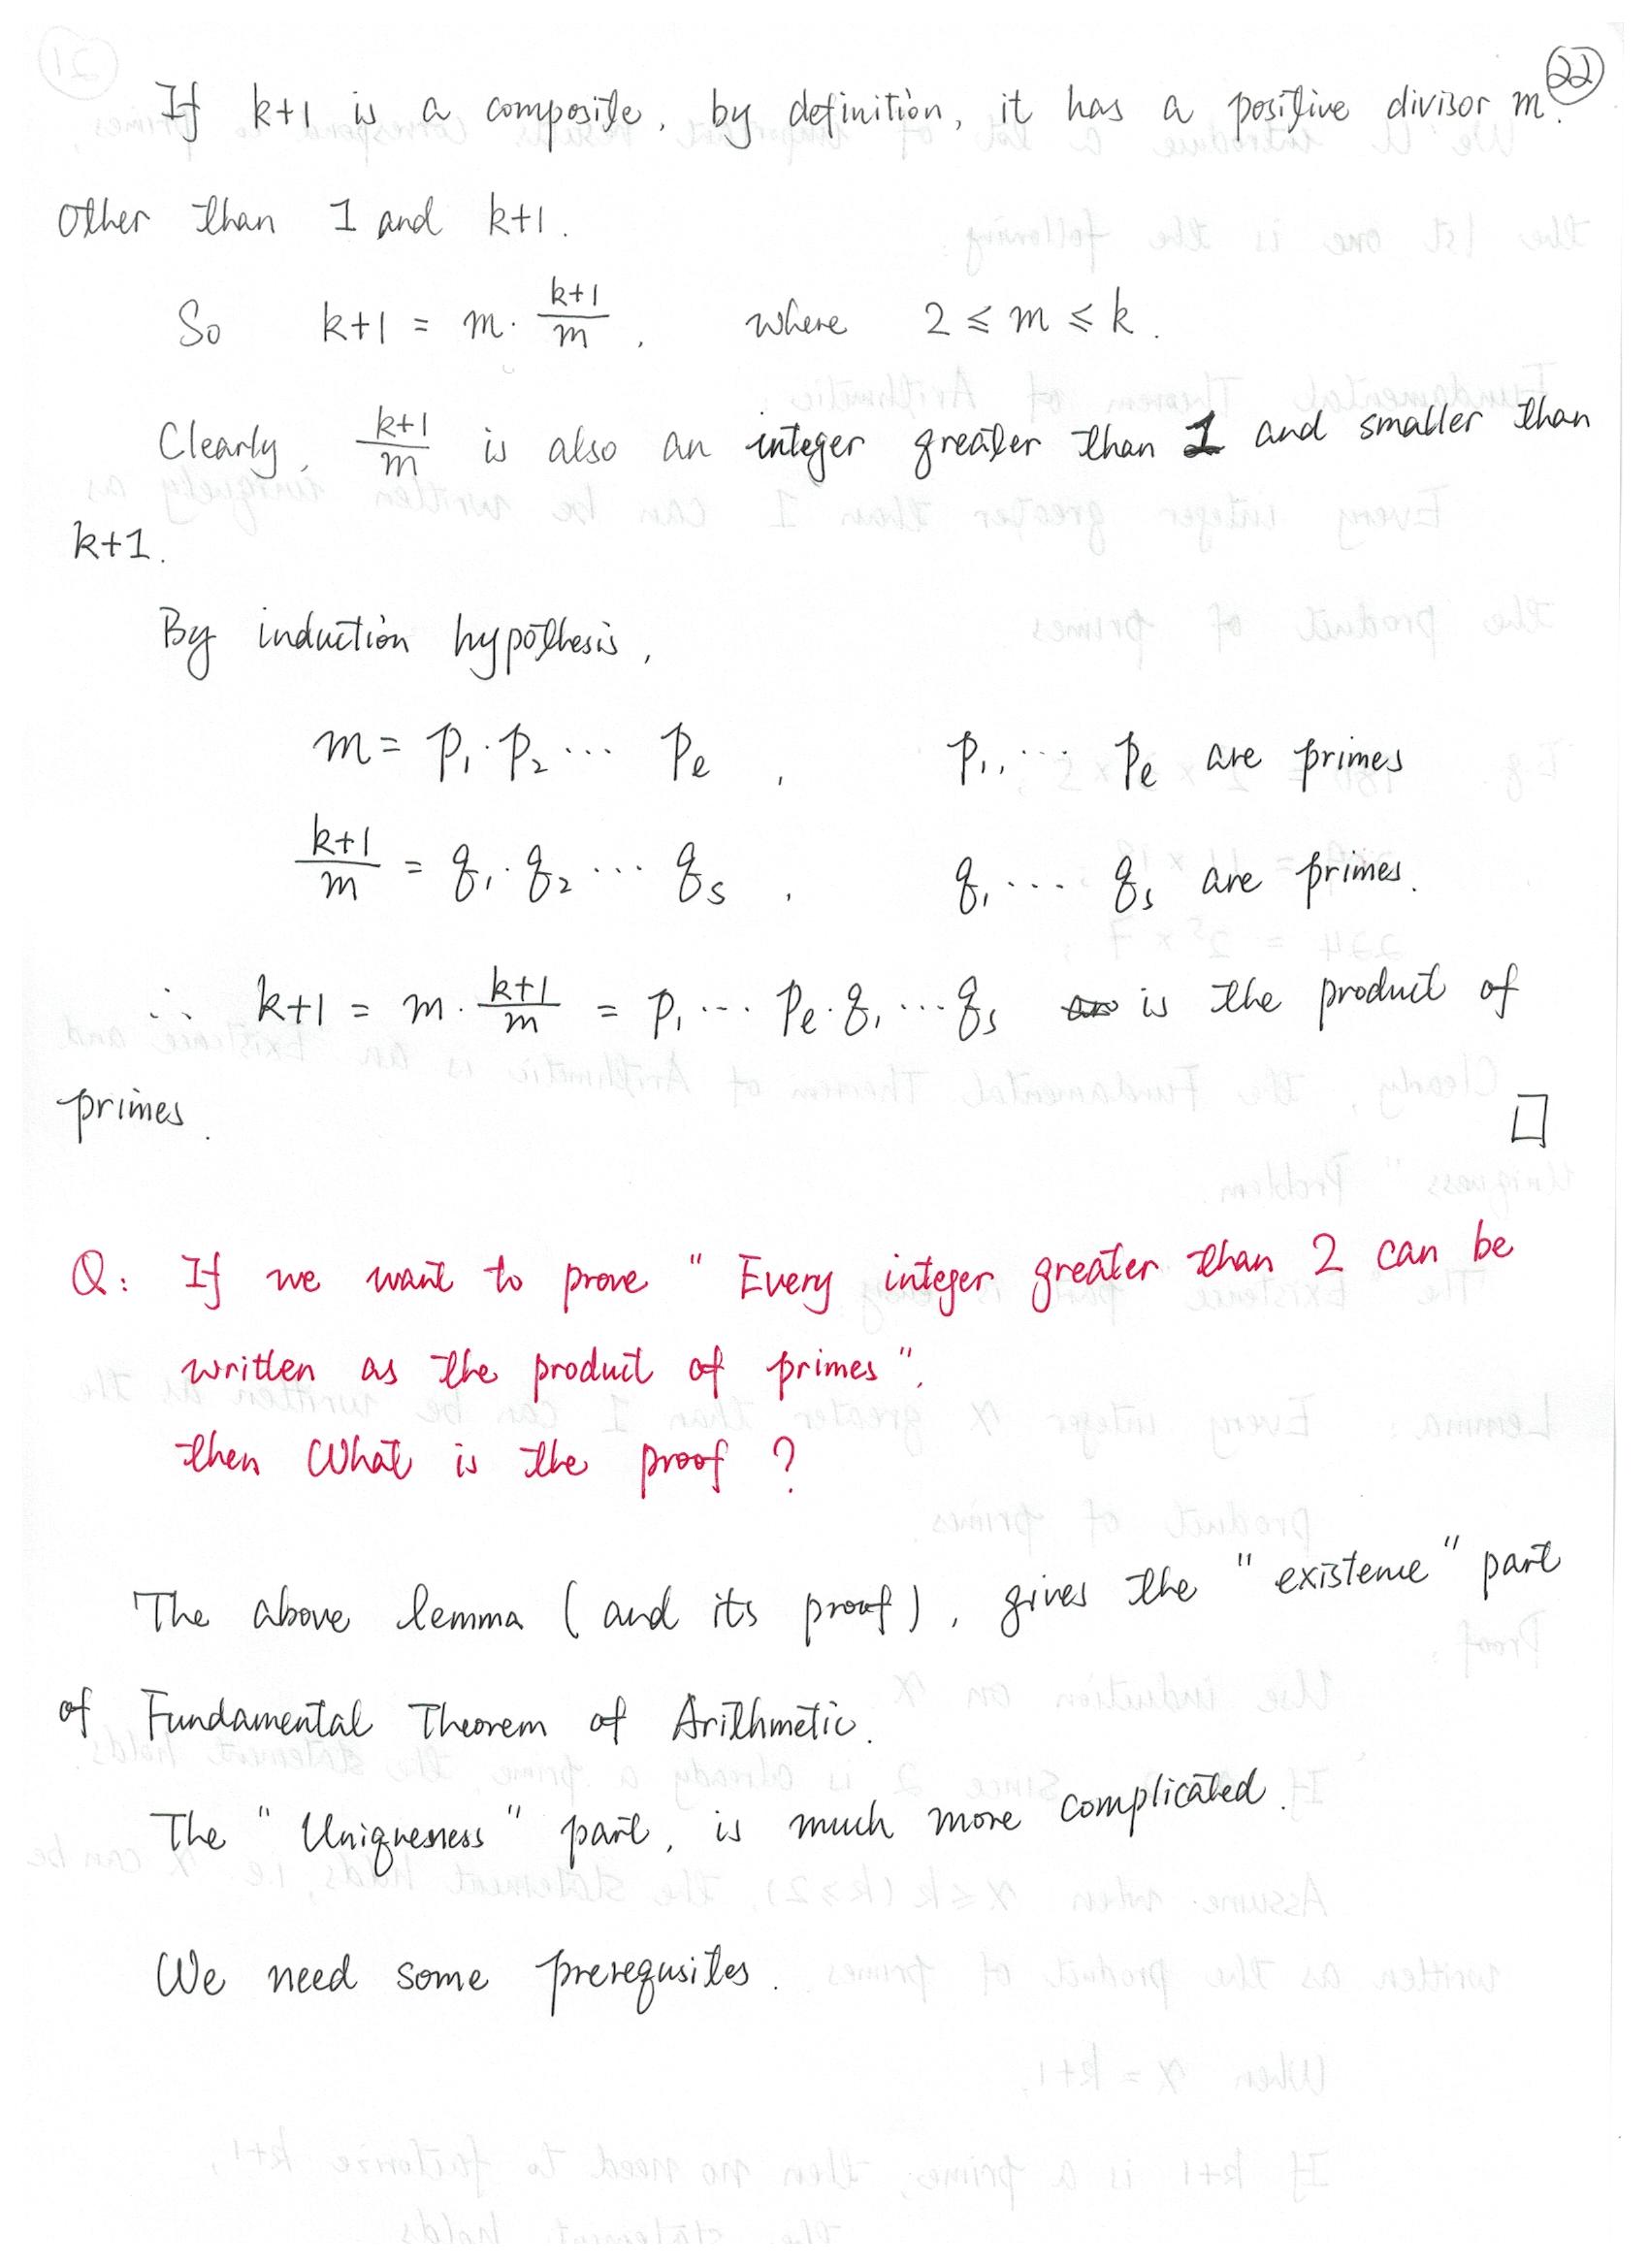 22
If k+1 is a composite, by definition, it has a positive divisor m.
Other than 1 and k+1.
So k+1 = m · (k+1)/m , where 2 ≤ m ≤ k.
Clearly, (k+1)/m is also an integer greater than 1 and smaller than
k+1.
By induction hypothesis,
m = p₁ · p₂ ··· pₑ , p₁, ··· pₑ are primes
(k+1)/m = q₁ · q₂ ··· qₛ , q₁ ··· qₛ are primes.
∴ k+1 = m · (k+1)/m = p₁ ··· pₑ · q₁ ··· qₛ is the product of
primes. □
Q: If we want to prove " Every integer greater than 2 can be
written as the product of primes",
then What is the proof ?
The above lemma ( and its proof ), gives the " existence " part
of Fundamental Theorem of Arithmetic.
The " Uniqueness " part, is much more complicated.
We need some prerequsites.